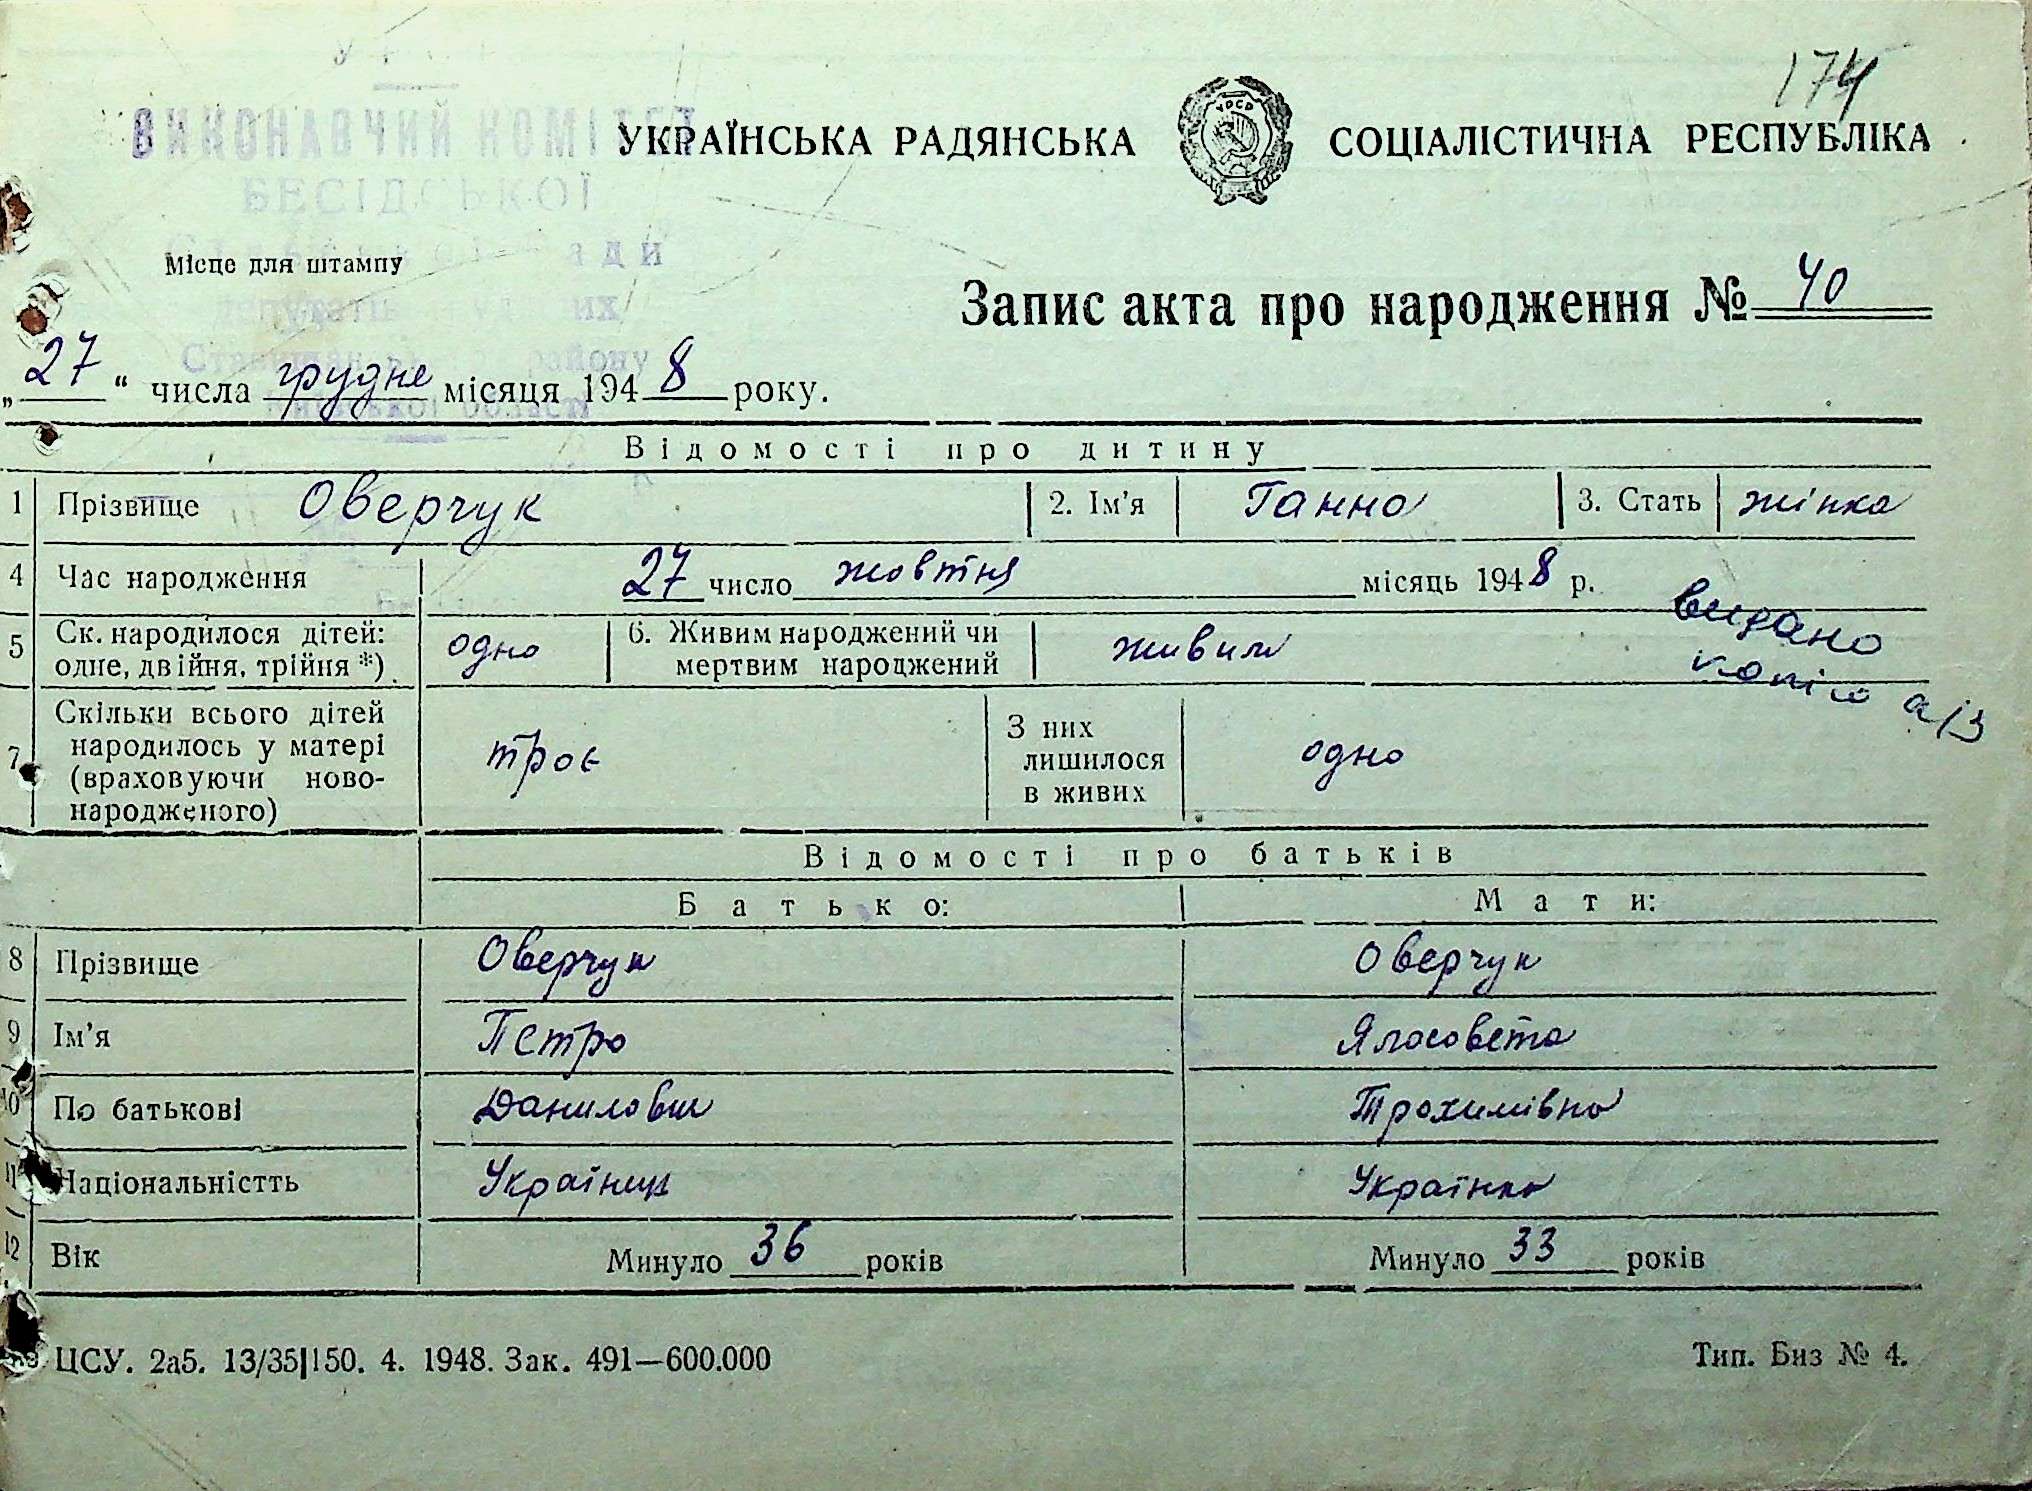 174
ВИКОНАВЧИЙ КОМІТЕТ
УКРАЇНСЬКА РАДЯНСЬКА УРСР СОЦІАЛІСТИЧНА РЕСПУБЛІКА
БЕСІДСЬКОЇ
Місце для штампу
Запис акта про народження № 40
району
„27“ числа грудне місяця 1948 року.
області
Відомості про дитину
1 Прізвище Оверчук 2. Ім'я Ганна 3. Стать жінка
4 Час народження 27 число жовтня місяць 1948 р.
видано
копію а/з
5 Ск. народилося дітей: одне, двійня, трійня *) одно 6. Живим народжений чи мертвим народжений живим
7 Скільки всього дітей народилось у матері (враховуючи ново-народженого) троє З них лишилося в живих одно
Відомості про батьків
Батько: Мати:
8 Прізвище Оверчук Оверчук
9 Ім'я Петро Ялосовета
10 По батькові Данилович Трохимівна
11 Національністть Українец Українка
12 Вік Минуло 36 років Минуло 33 років
ЦСУ. 2а5. 13/35|150. 4. 1948. Зак. 491—600.000
Тип. Биз № 4.